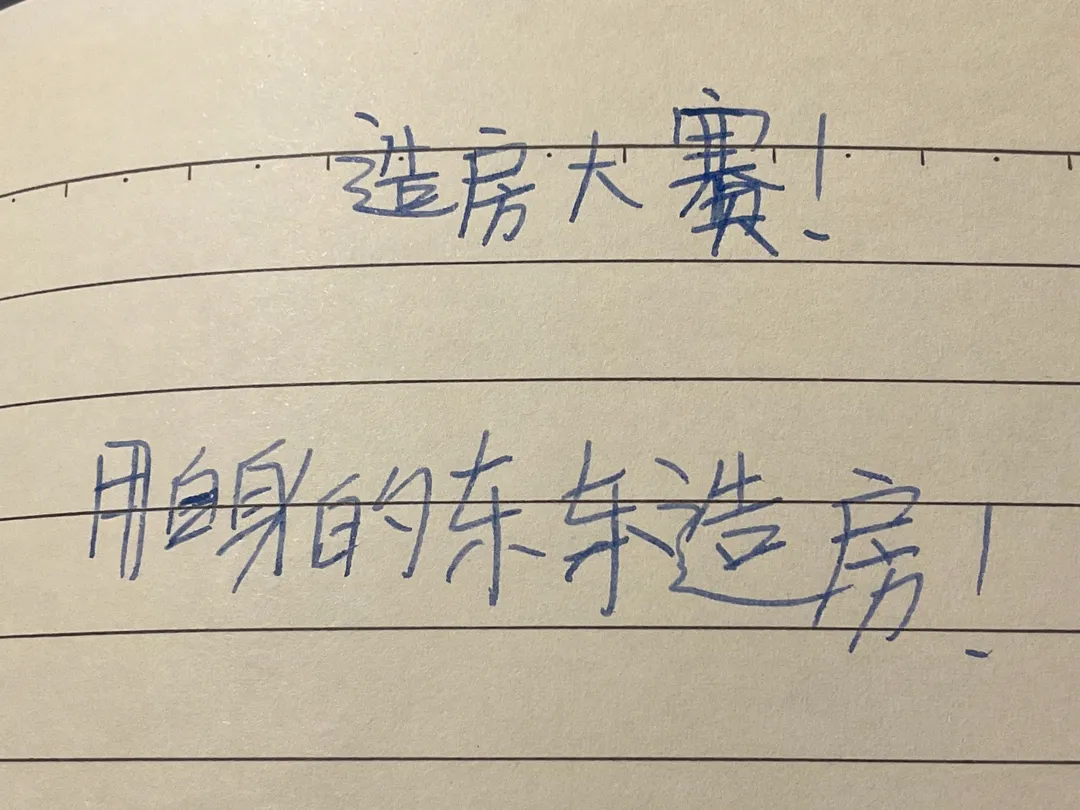 造房大赛！
用自身的东东造房！